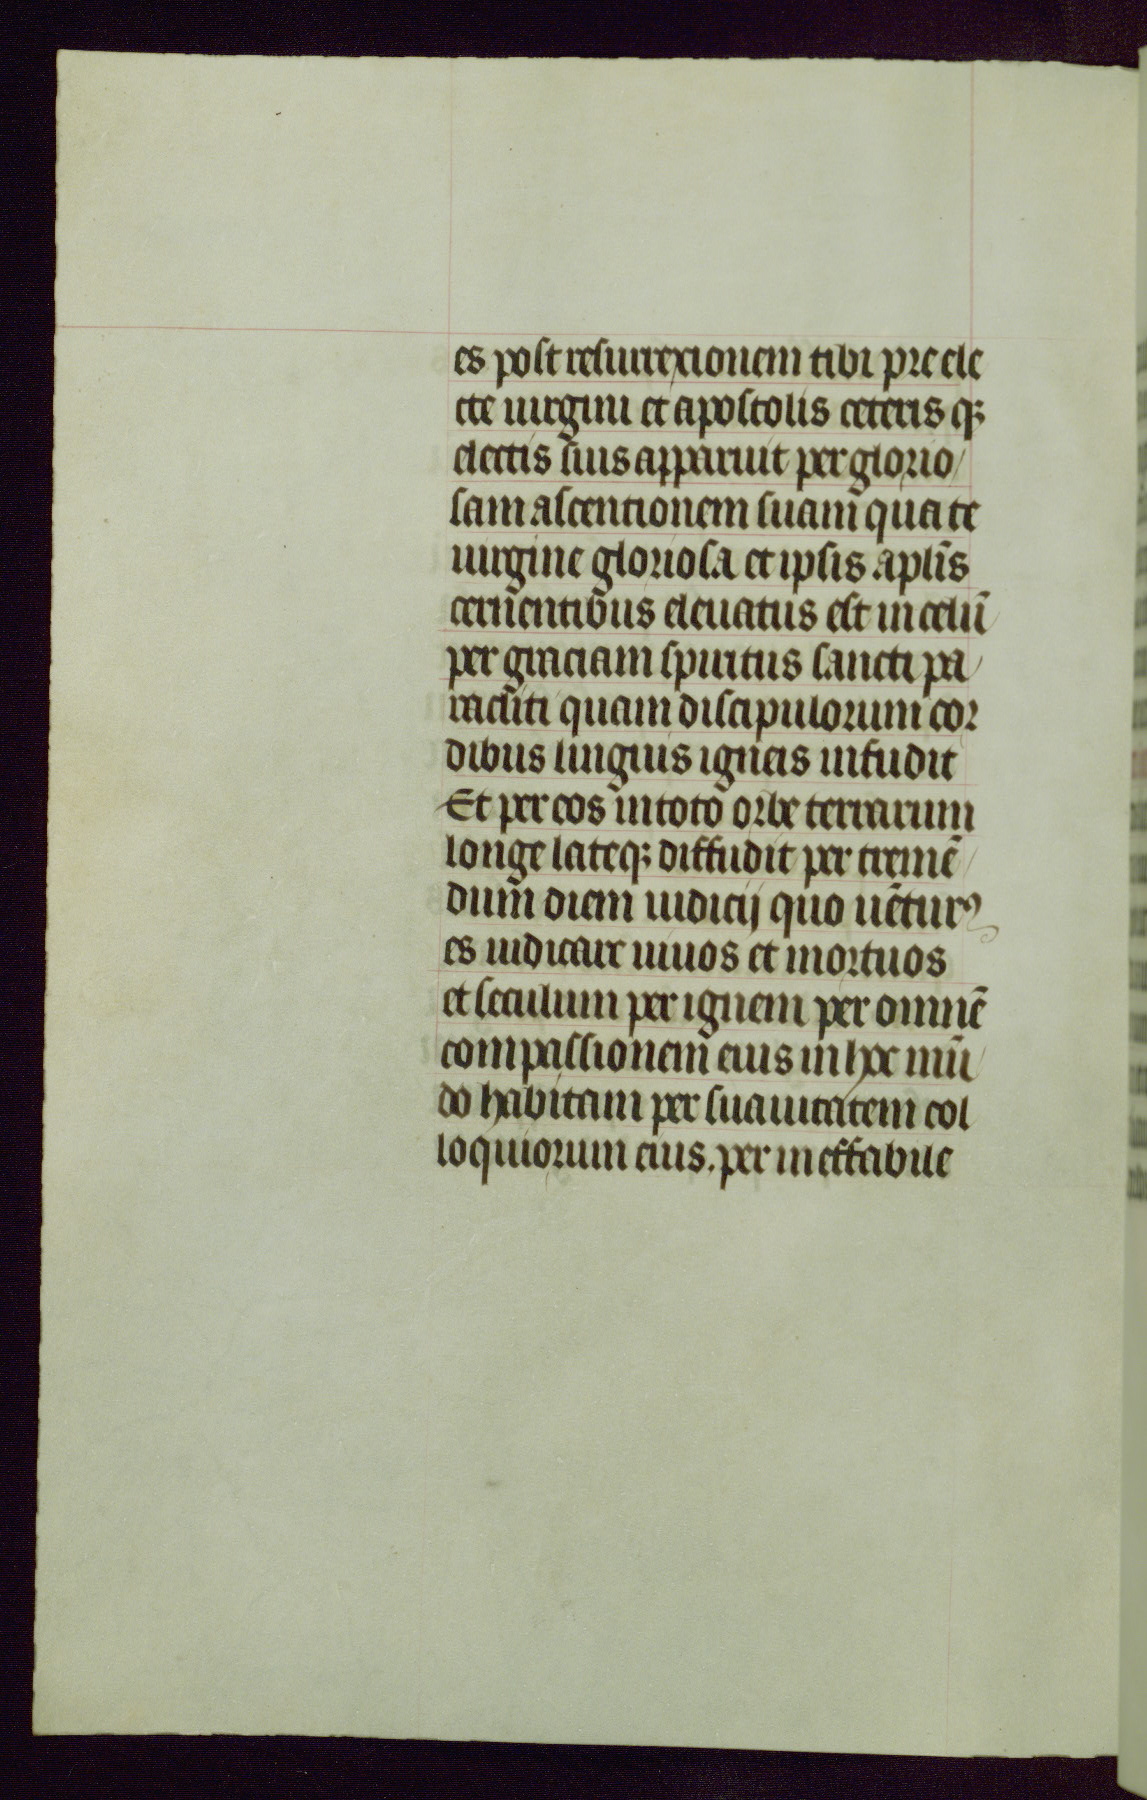 es post resurrexionem tibi pre ele
cte uirgini et apostolis ceteris q;
electis suis apparuit per glorio/
sam ascentionem suam qua te
uirgine gloriosa et ipsis aplīs
cernentibus eleuatus est in celū
per graciam spiritus sancti pa/
racliti quam discipulorum cor
dibus linguis igneis infudit
Et per eos in toto orbe terrarum
longe lateq; diffudit per tremē/
dum diem iudicij quo uētur⁹
es iudicare uiuos et mortuos
et seculum per ignem per omnē
compassionem eius in hoc mū/
do habitam per suauitatem col
loquiorum eius. per ineffabile